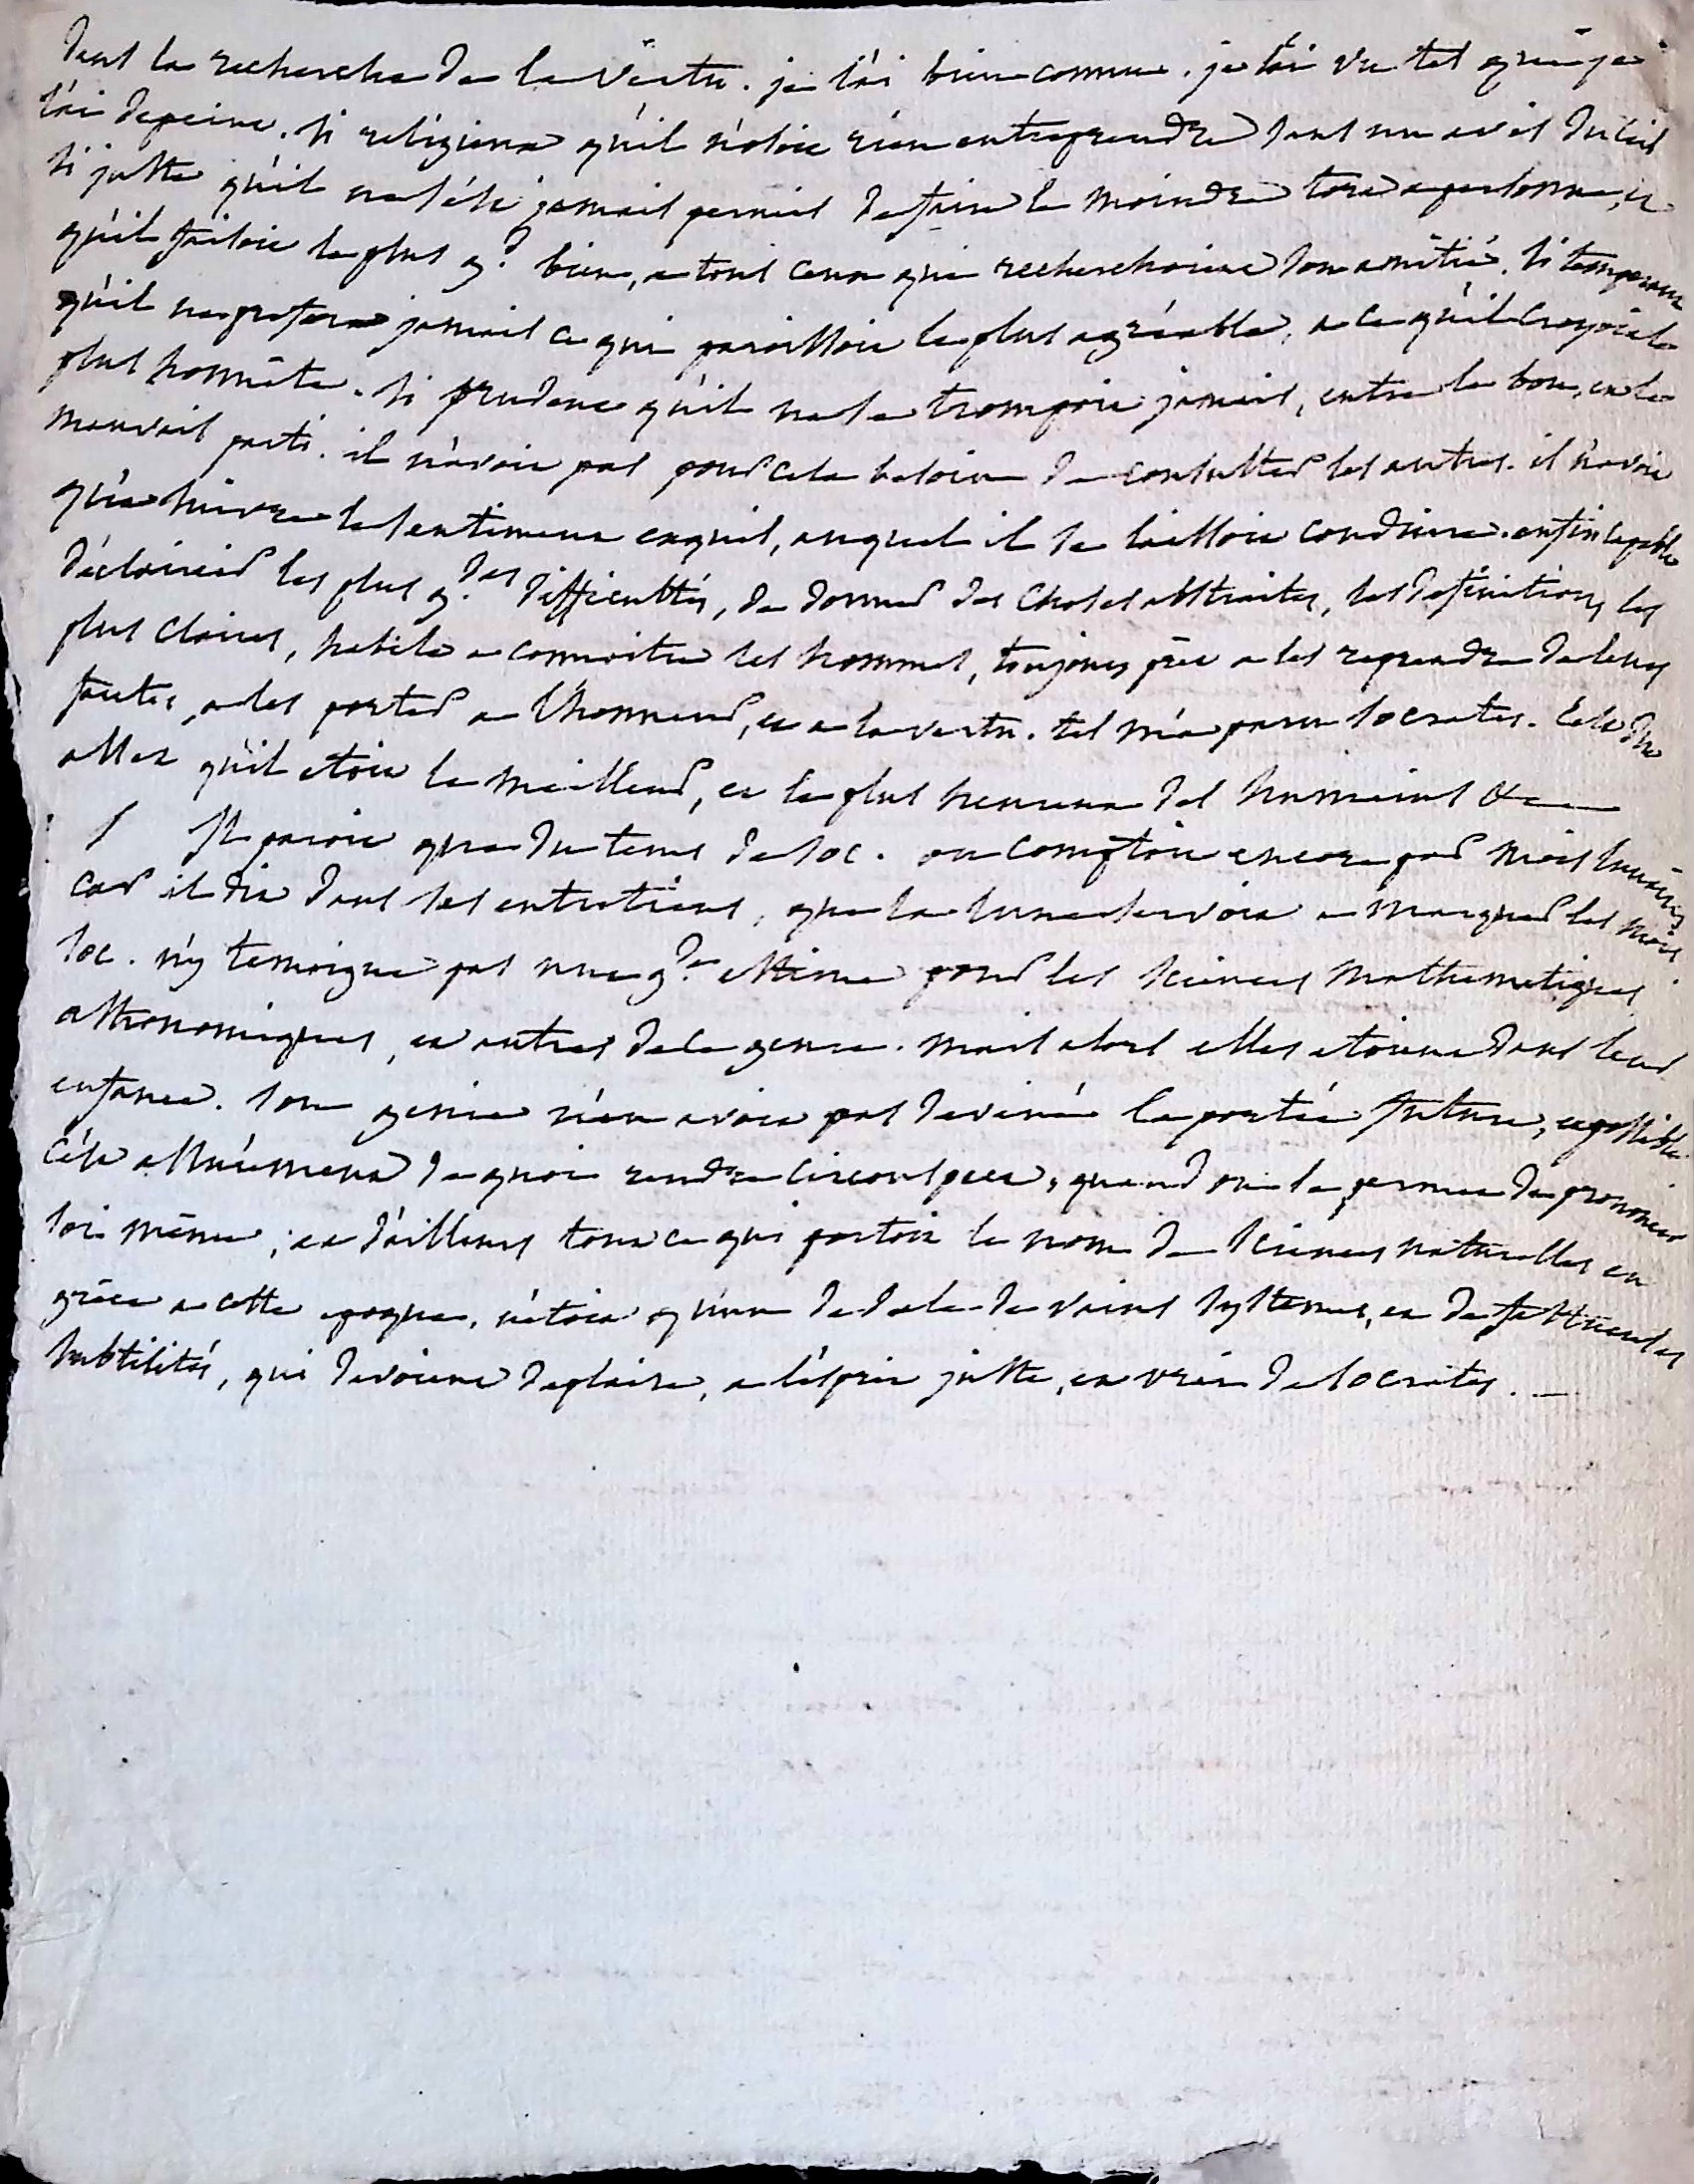 dans la recherche de la vertu. je l'ai bien connu. je l'ai vu tel que je
l'ai depeint. si religieux qu'il n'osoit rien entreprendre sans un avis du ciel
si juste qu'il ne s'est jamais permis de faire le moindre tort a personne, et
qu'il faisoit le plus gd bien, a tous ceux qui recherchoient son amitié. si temperant
qu'il ne prefera jamais ce qui paroissoit le plus agréable, a ce qu'il croyoit le
plus honnête. si prudent qu'il ne se trompoit jamais, entre le bon, et le
mauvais parti. il n'avoit pas pour cela besoin de consulter les autres. il n'avoit
qu'a suivre le sentiment exquis, auquel il se laissoit conduire. enfin capable
d'éclaircir les plus g.des difficultés, de donner des choses abstraites, les definitions les
plus claires, habile a connoitre les hommes, toujours prêt a les reprendre de leurs
fautes, a les porter a l'honneur, et a la vertu. tel m'a paru socrates. c'est dire
assez qu'il etoit le meilleur, et le plus heureux des humains &c
/ Il paroit que du tems de soc. on comptoit encore par mois lunaires
car il dit dans ses entretiens, que la lune servoit a marquer les mois.
soc. n'y temoigne pas une g.de estime pour les sciences mathematiques
astronomiques, et autres de ce genre. mais alors elles etoient dans leur
enfance. son genie n'en avoit pas deviné la portée future, et possible.
c'est assurément de quoi rendre circonspect, quand on se permet de prononcer
soi même; et d'ailleurs tout ce qui portoit le nom de sciences naturelles en
grèce a cette epoque, n'étoit qu'un dedale de vains systemes, et de fastueuses
subtilités, qui devoient deplaire, a l'esprit juste, et vrai de socrates.